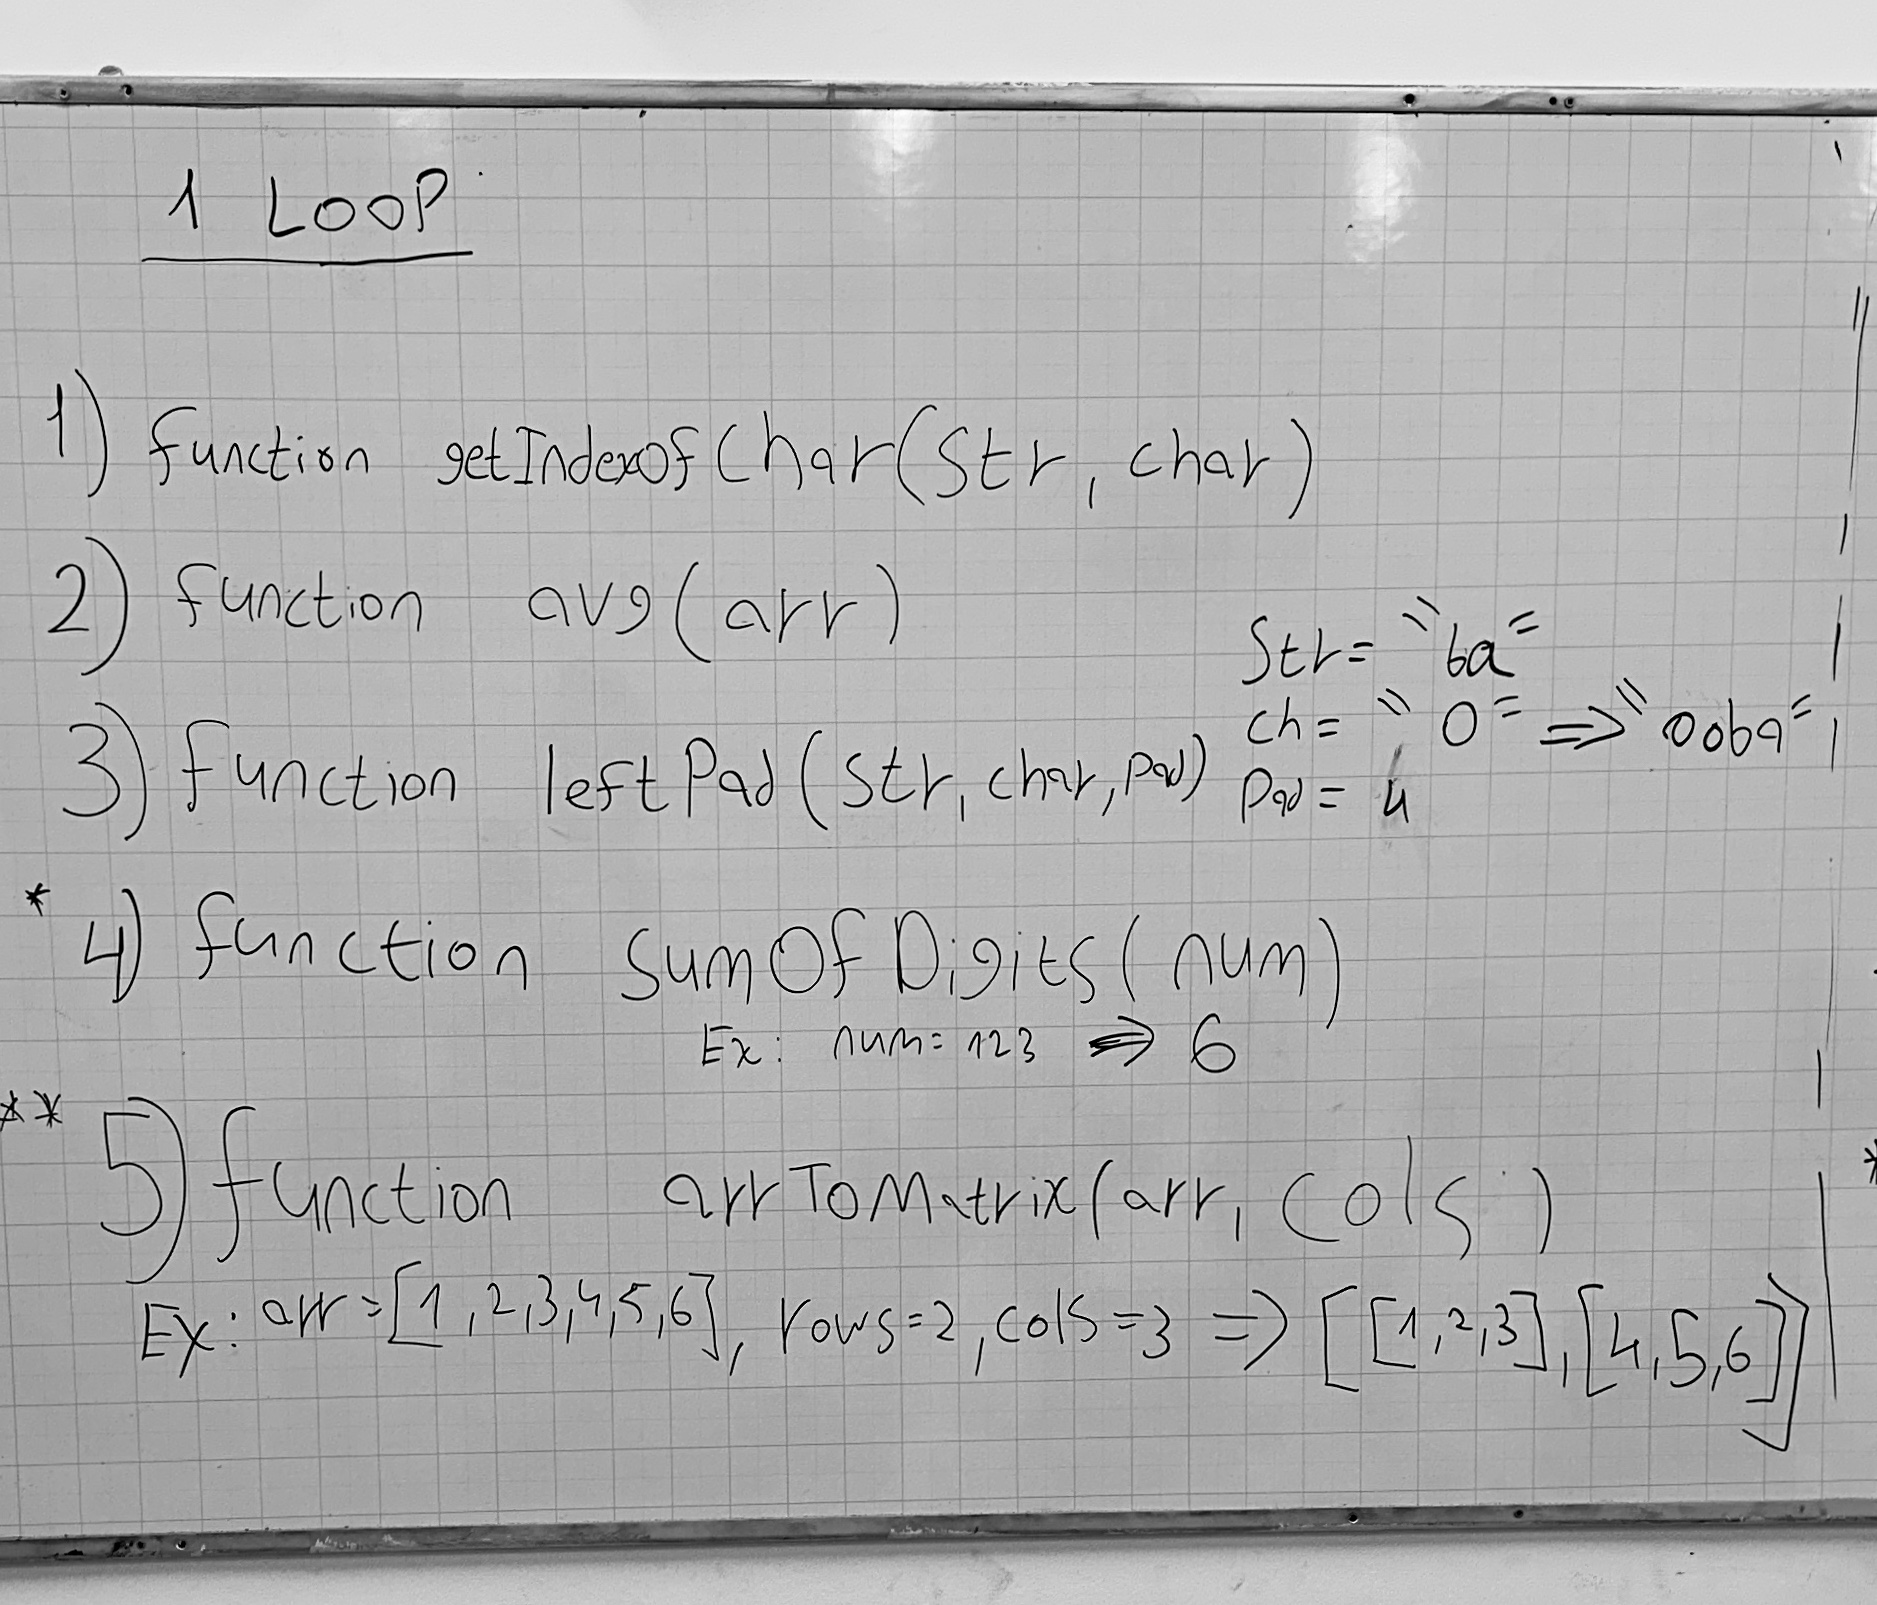 1 LOOP
1) function getIndexOfChar(str, char)
2) function avg(arr)
3) function leftPad(str, char, pad)
str= "ba"
ch= "0" => "00ba"
pad= 4
* 4) function sumOfDigits(num)
Ex: num= 123 => 6
** 5) function arrToMatrix(arr, cols)
Ex: arr=[1,2,3,4,5,6], rows=2, cols=3 => [[1,2,3],[4,5,6]]
*